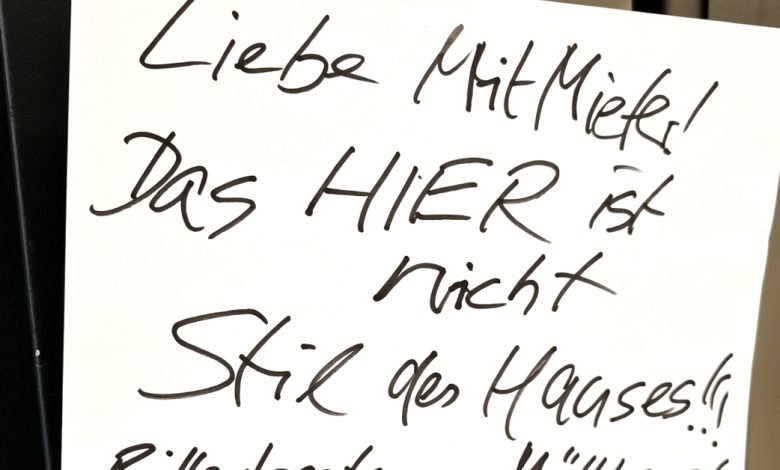 Liebe MitMieter!
Das HIER ist
nicht
Stil des Hauses!!!